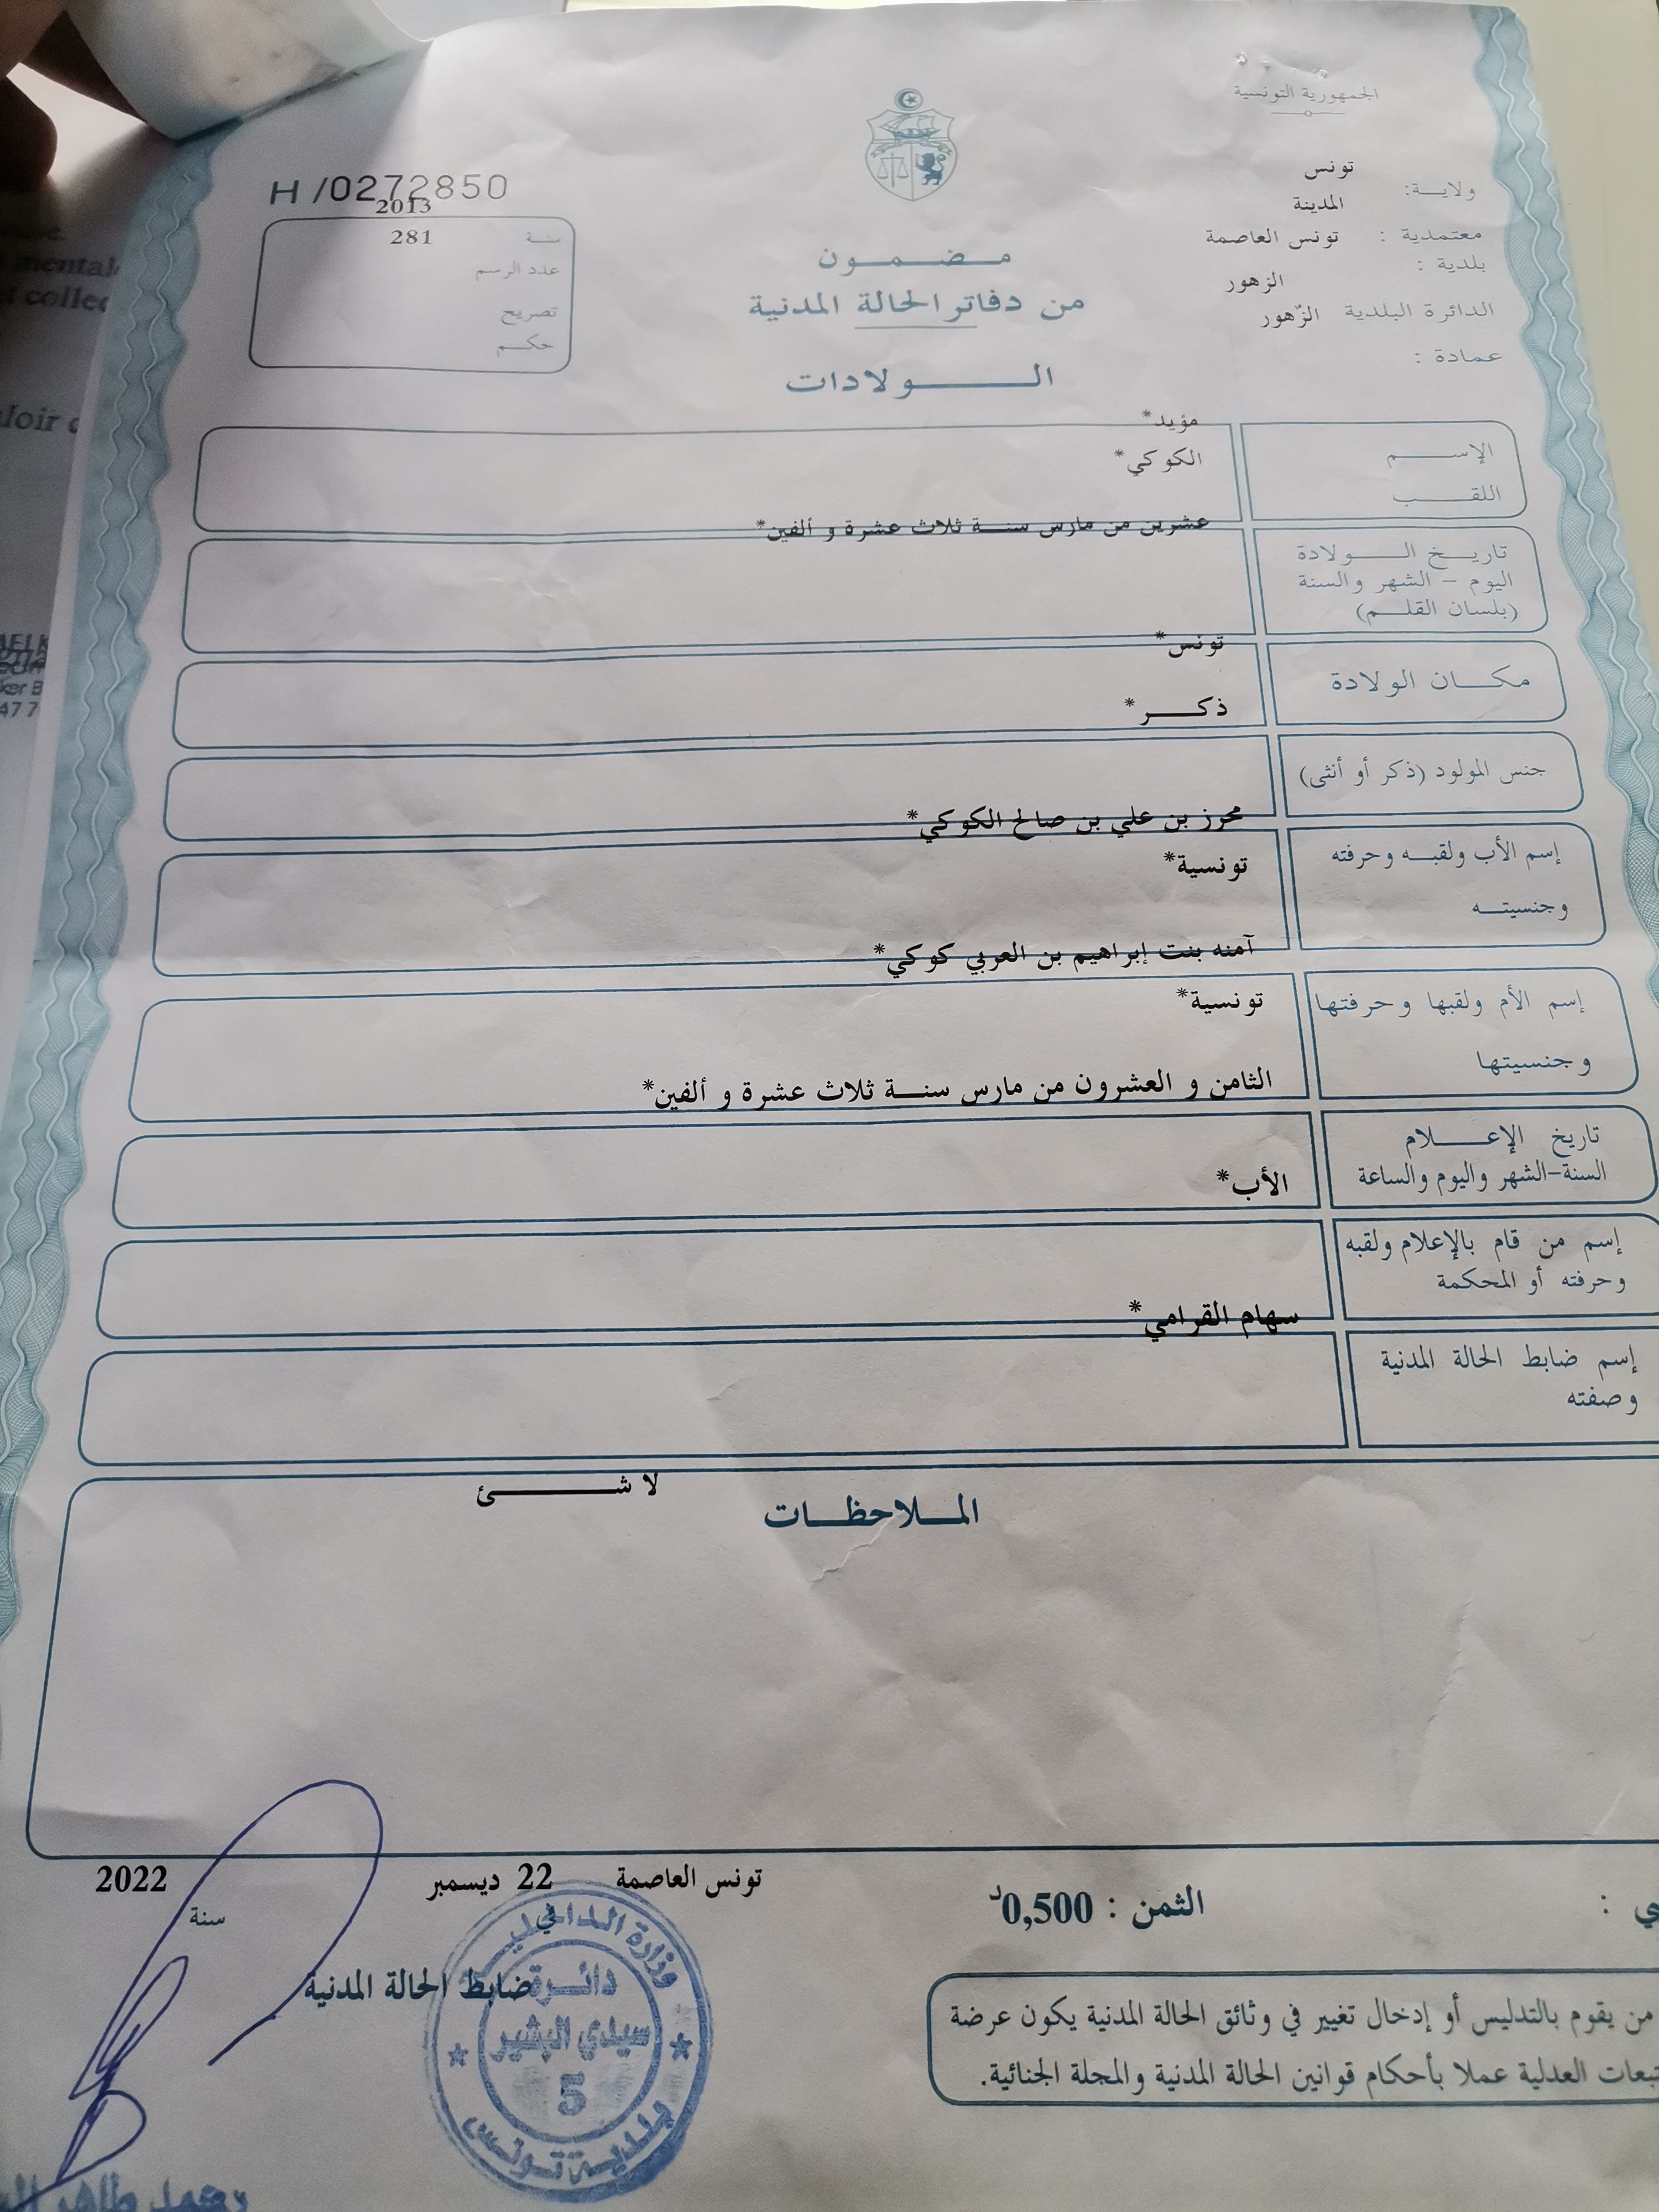 الجمهورية التونسية
ولاية: تونس
المدينة
معتمدية : تونس العاصمة
بلدية :
الزهور
الدائرة البلدية الزّهور
عمادة :
H/0272850
2013
سنة 281
عدد الرسم
تصريح
حكم
مضمون
من دفاتر الحالة المدنية
الولادات
مؤيد*
الإسم
الكوكي*
اللقب
عشرين من مارس سنة ثلاث عشرة و ألفين*
تاريخ الولادة
اليوم - الشهر والسنة
(بلسان القلم)
تونس*
مكان الولادة
ذكر*
جنس المولود (ذكر أو أنثى)
محرز بن علي بن صالح الكوكي*
إسم الأب ولقبه وحرفته
تونسية*
وجنسيته
آمنه بنت إبراهيم بن العربي كوكي*
إسم الأم ولقبها وحرفتها
تونسية*
وجنسيتها
الثامن و العشرون من مارس سنة ثلاث عشرة و ألفين*
تاريخ الإعلام
السنة-الشهر واليوم والساعة
الأب*
إسم من قام بالإعلام ولقبه
وحرفته أو المحكمة
سهام القرامي*
إسم ضابط الحالة المدنية
وصفته
لا شئ
الملاحظات
تونس العاصمة 22 ديسمبر 2022
في سنة
الثمن : 0,500د
ضابط الحالة المدنية
من يقوم بالتدليس أو إدخال تغيير في وثائق الحالة المدنية يكون عرضة
العدلية عملا بأحكام قوانين الحالة المدنية والمجلة الجنائية.
وزارة الداخلية
دائرة
سيدي البشير
5
بلدية تونس
محمد طاهر
mental
collec
loir
ker B
47 7